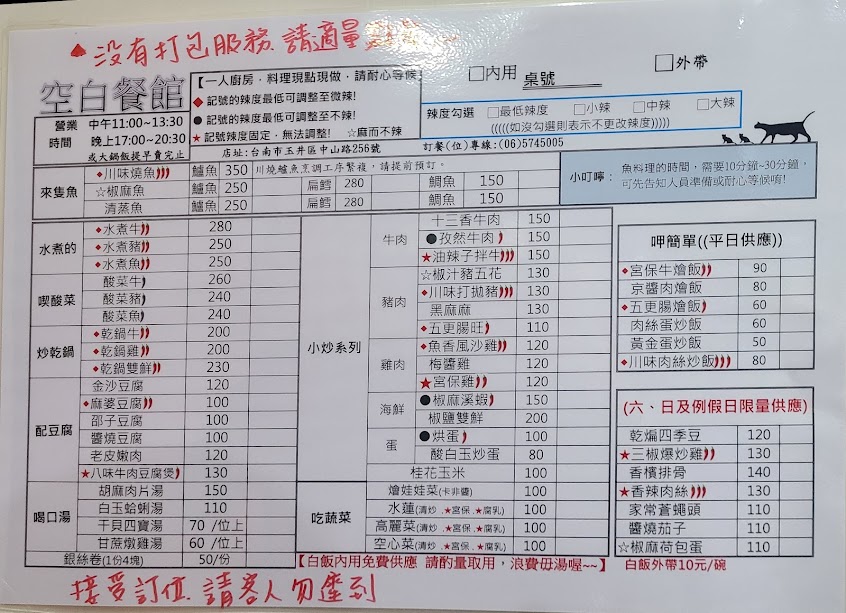 ▲沒有打包服務.請適量
空白餐館
【一人廚房．料理現點現做，請耐心等候
◆記號的辣度最低可調整至微辣!
●記號的辣度最低可調整至不辣!
★記號辣度固定，無法調整! ☆麻而不辣
□內用 桌號
□外帶
辣度勾選 □最低辣度 □小辣 □中辣 □大辣
(((((如沒勾選則表示不更改辣度)))))
營業時間 中午11:00~13:30
晚上17:00~20:30
或大鍋飯提早賣完止
店址:台南市玉井區中山路256號 訂餐(位)專線:(06)5745005
來隻魚
◆川味燒魚 鱸魚 350 川燒鱸魚烹調工序繁複，請提前預訂。
☆椒麻魚 鱸魚 250 扁鱈 280 鯛魚 150
清蒸魚 鱸魚 250 扁鱈 280 鯛魚 150
小叮嚀: 魚料理的時間，需要10分鐘~30分鐘，
可先告知人員準備或耐心等候喲!
水煮的
◆水煮牛 280
◆水煮豬 250
◆水煮魚 250
喫酸菜
酸菜牛 260
酸菜豬 240
酸菜魚 240
炒乾鍋
◆乾鍋牛 200
◆乾鍋雞 200
◆乾鍋雙鮮 230
配豆腐
金沙豆腐 120
◆麻婆豆腐 100
邵子豆腐 100
醬燒豆腐 100
老皮嫩肉 120
★八味牛肉豆腐煲 130
喝口湯
胡麻肉片湯 150
白玉蛤蜊湯 110
干貝四寶湯 70 /位上
甘蔗燉雞湯 60 /位上
銀絲卷(1份4塊) 50/份
小炒系列
牛肉
十三香牛肉 150
●孜然牛肉 150
★油辣子拌牛 150
豬肉
☆椒汁豬五花 130
◆川味打拋豬 130
黑麻麻 130
◆五更腸旺 110
雞肉
◆魚香風沙雞 120
梅醬雞 120
★宮保雞 120
海鮮
●椒麻溪蝦 150
椒鹽雙鮮 200
蛋
●烘蛋 100
酸白玉炒蛋 80
桂花玉米 100
吃蔬菜
燴娃娃菜(卡非醬) 100
水蓮(清炒．★宮保．★腐乳) 100
高麗菜(清炒．★宮保．★腐乳) 100
空心菜(清炒．★宮保．★腐乳) 100
【白飯內用免費供應 請酌量取用，浪費毋湯喔~~】
呷簡單((平日供應))
◆宮保牛燴飯 90
京醬肉燴飯 80
◆五更腸燴飯 60
肉絲蛋炒飯 60
黃金蛋炒飯 50
◆川味肉絲炒飯 80
(六、日及例假日限量供應)
乾煸四季豆 120
★三椒爆炒雞 130
香檳排骨 140
★香辣肉絲 130
家常蒼蠅頭 110
醬燒茄子 110
☆椒麻荷包蛋 110
白飯外帶10元/碗
接受訂位.請客人勿遲到